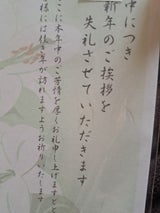 中につき
新年のご挨拶を
失礼させていただきます
ここに本年中のご芳情を厚くお礼申し上げますとと
様には佳き年が訪れますようお祈りいたします